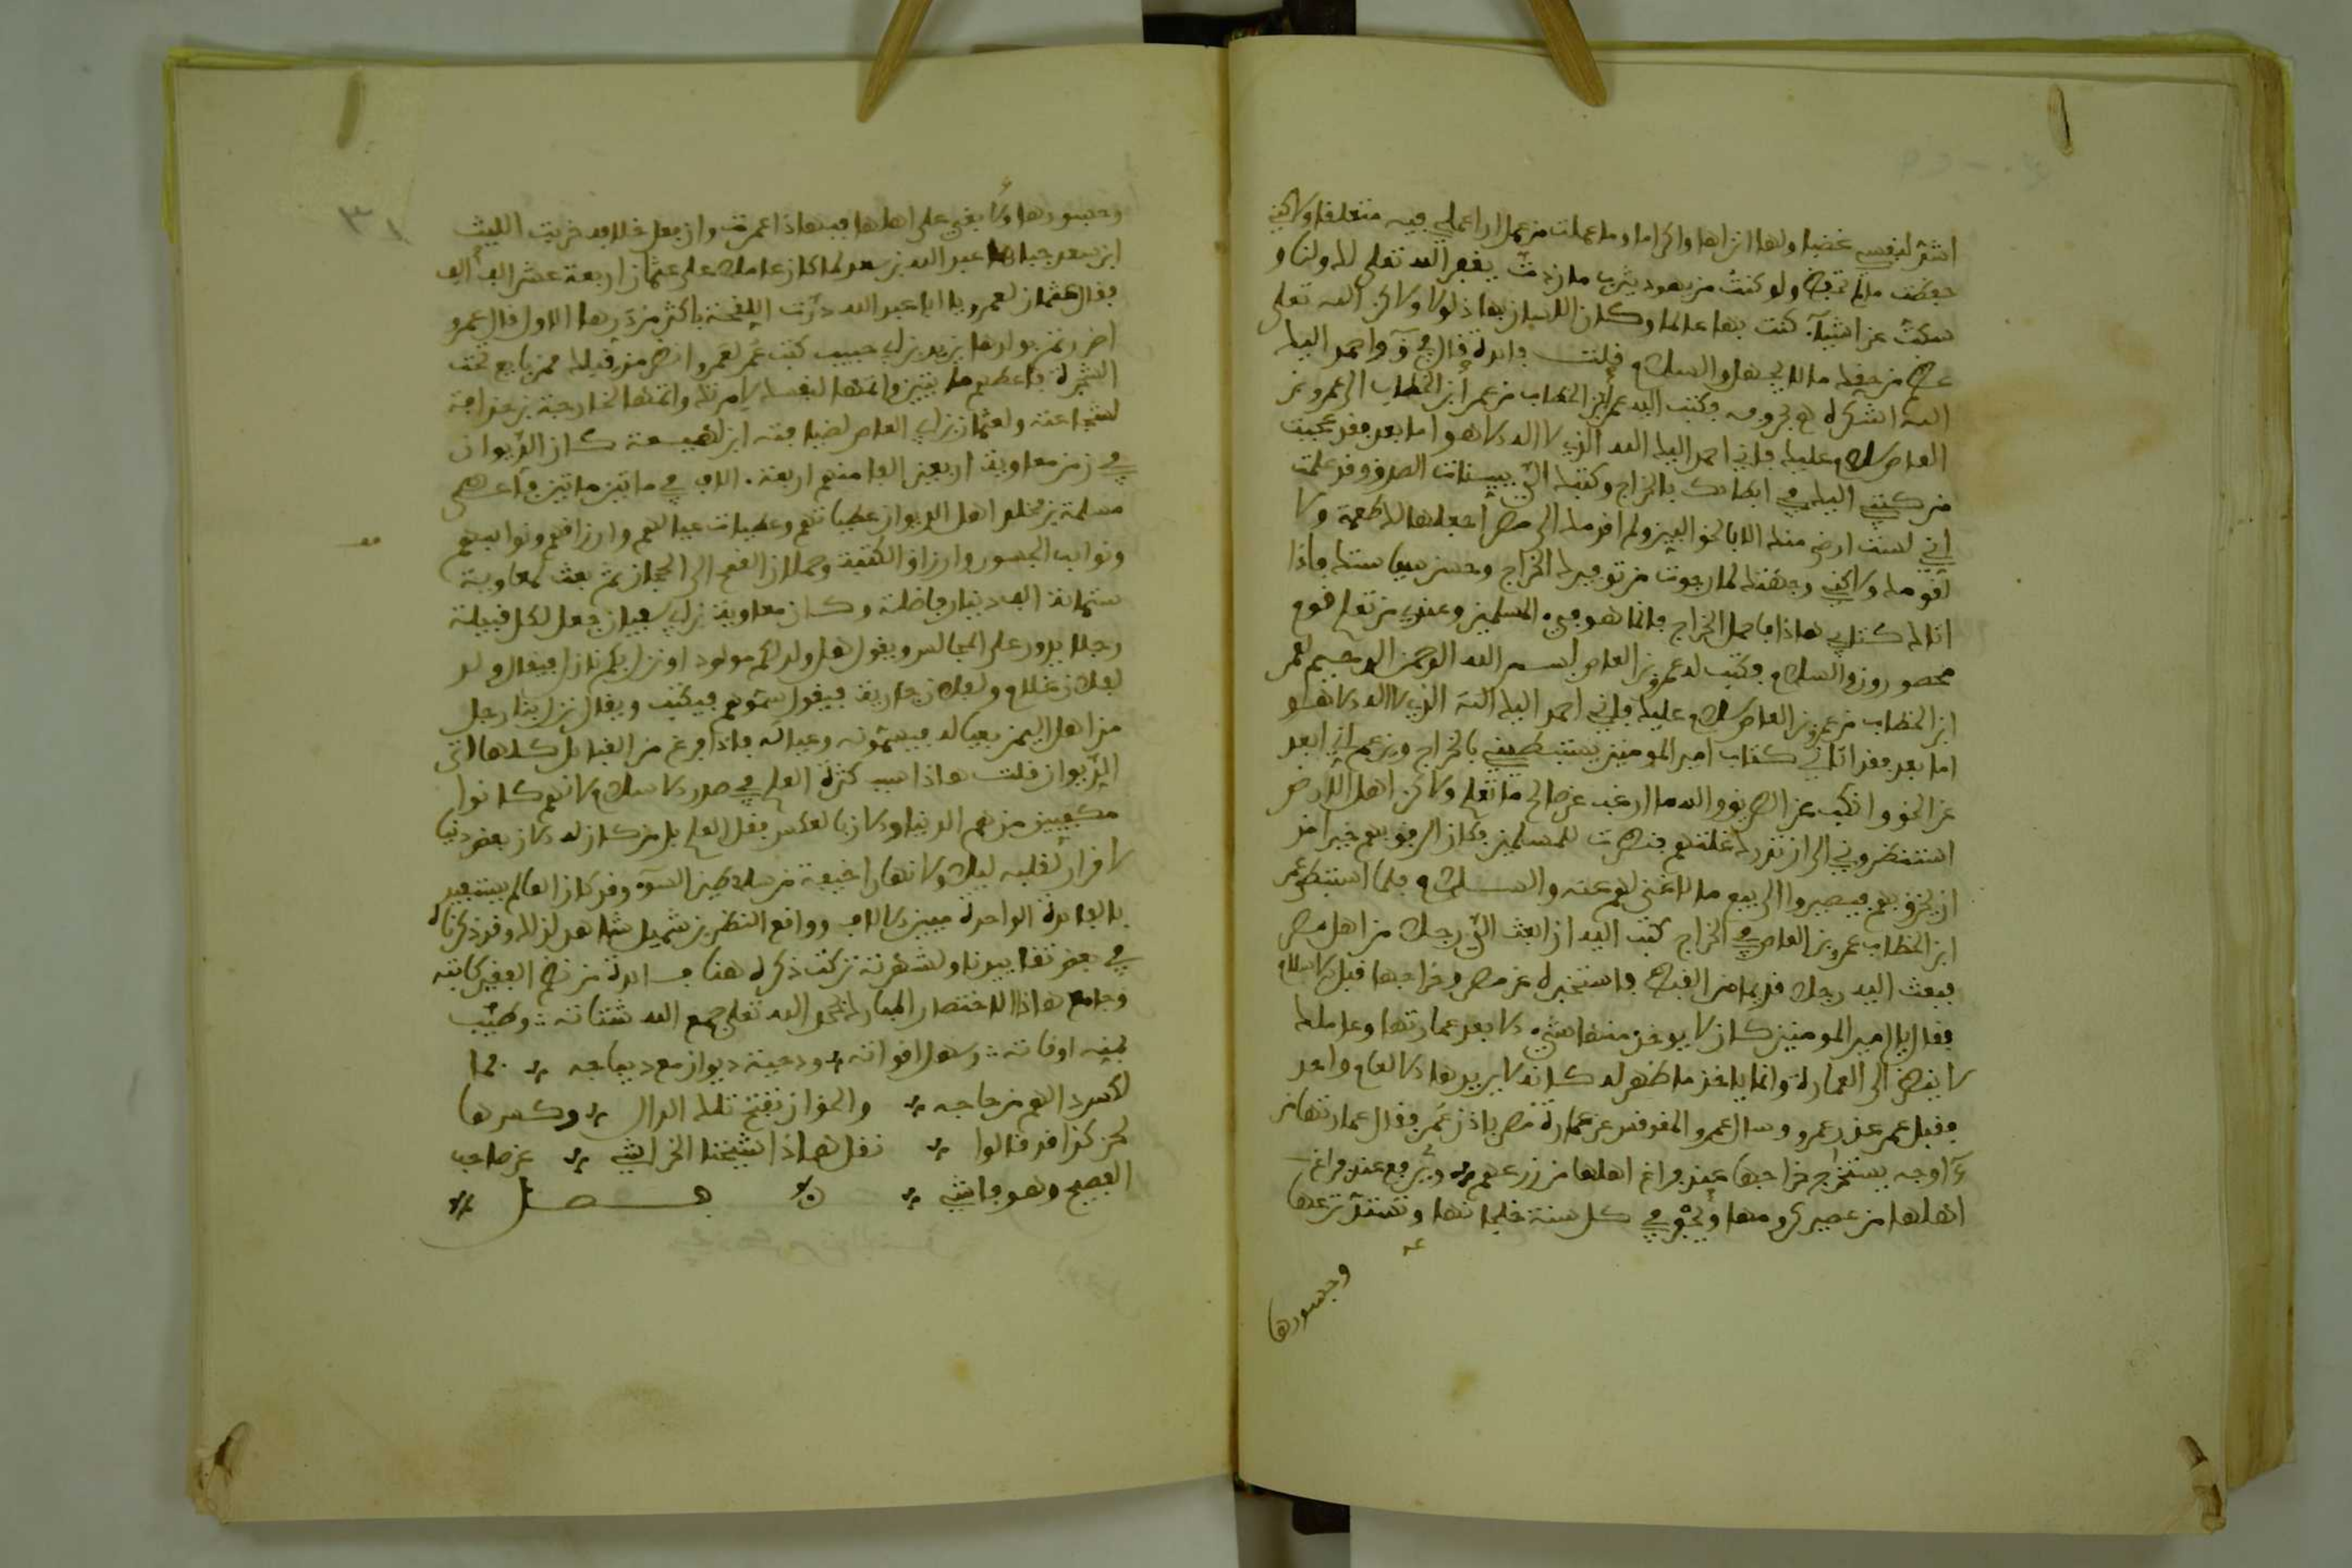 اشد لنفسي غضبا ولها انزاها واكراما وما عملت من عمل ارا علي فيه متعلقا ولاكني
حفظت ما لم تحفظ ولو كنت من يهود يثرب ما زدت يغفر الله تعلى لك ولنا و
سكت عن اشيآء كنت بها عالما وكان اللسان بها ذلولا ولاكن الله تعلى
عظم من حقك ما لا يجهل والسلام قلت فايدة قال في واحمد اليك
الله اشكره فكتب اليه عمر ابن الخطاب من عمر ابن الخطاب الى عمرو بن
العاص سلام عليك فإني احمد اليك الله الذي لا اله الا هو اما بعد فقد عجبت
من كتبي اليك في ابطايك بالخراج وكتبك الي ببنيات الطرق وقد علمت
اني لست ارضى منك الا بالحق البين ولم اقدمك الى مصر اجعلها لك طعمة ولا
لقومك ولاكني وجهتك لما رجوت من توفيرك الخراج وحسن سياستك فإذا
اتاك كتابي هاذا فاحمل الخراج فإنما هو فيء المسلمين وعندي من تعلم قوم
محصورون والسلام فكتب له عمرو بن العاص بسم الله الرحمن الرحيم لعمر
ابن الخطاب من عمرو بن العاص سلام عليك فإني احمد اليك الله الذي لا اله الا هو
اما بعد فقد اتاني كتاب امير المومنين يستبطيني بالخراج ويزعم اني اعند
عن الحق وانكب عن الطريق والله ما ارغب عن صالح ما تعلم ولاكن اهل الارض
استنظروني الى ان تدرك غلتهم فنظرت للمسلمين فكان الرفق بهم خيرا من
ان يخرق بهم فيصيروا الى بيع ما لا غنى لهم عنه والسلام فلما استبطى عمر
ابن الخطاب عمرو بن العاص في الخراج كتب اليه ان ابعث الي رجلا من اهل مصر
فبعث اليه رجلا قديما من القبط فاستخبره عن مصر وخراجها قبل الاسلام
فقال يا امير المومنين كان لا يوخذ منها شيء الا بعد عمارتها وعاملك
لا ينظر الى العمارة وانما ياخذ ما ظهر له كانه لا يريدها الا لعام واحد
فقبل عمر عذر عمرو وسال عمرو المقوقس عن عمارة مصر باذن عمر فقال عمارتها من
اوجه يستخرج خراجها عند فراغ اهلها من زرعهم ويرفع عند فراغ
اهلها من عصير كرومها وتحفر في كل سنة خلجانها وتسد ترعها
وجسورها
٣١
وجسورها ولا يبغي على اهلها فبهاذا عمرت وان فعل خلافه خربت الليث
ابن سعد جباها عبد الله بن سعد لما كان عاملا على عثمان اربعة عشر الف الف
فقال عثمان لعمرو يا ابا عبد الله درت اللقحة باكثر من درها الاول قال عمرو
اضررتم بولدها يزيد بن ابي حبيب كتب عمر لعمرو انظر من قبلك ممن بايع تحت
الشجرة فاعطهم مايتين واتمها لنفسك لإمرتك واتمها لخارجة بن حذافة
لشجاعته ولعثمان بن ابي العاص لضيافته ابن لهيعة كان الديوان
في زمن معاوية اربعين الفا منهم اربعة الاف في مايتين مايتين فاعطى
مسلمة بن مخلد اهل الديوان عطياتهم وعطيات عيالهم وارزاقهم ونوايبهم
ونوايب الجسور وارزاق الكتبة وحملان القمح الى الحجاز ثم بعث لمعاوية
ستماية الف دينار فاضلة وكان معاوية بن ابي سفيان جعل لكل قبيلة
رجلا يدور على المجالس ويقول هل ولد لكم مولود او نزل بكم نازل فيقال ولد
لفلان غلام ولفلان جارية فيقول سموهم فيكتب ويقال نزل بنا رجل
من اهل اليمن بعياله فيسمونه وعياله فإذا فرغ من القبايل كلها اتى
الديوان قلت هاذا سبب كثرة العلم في صدر الاسلام لانهم كانوا
مكفيين من هم الدنيا والان بالعكس فقل العلم بل من كان له الان بعض دنيا
لا قرار لقلبه ليلا ولا نهارا خيفة من سلاطين السوء وقد كان العالم يستفيد
بالفايدة الواحدة مييز الالاف وواقع النظر بن شميل شاهد لذلك وقد ذكرناه
في بعض تقاييدنا ولشهرته تركت ذكره هنا فايدة من نظم الفقير كاتبه
وجامع هاذا الاختصار المبارك بحمد الله تعلى جمع الله شتاته وطيب
بمنه اوقاته وسهل اقواته ودجية ديوان مع ديباجه بما
لكسر دالهم من حاجه والخوان بفتح تلك الدال وكسرها
لحن كذا قد قالوا نقل هاذا شيخنا الخراشي عن صاحب
الفصيح وهو فاش فصل